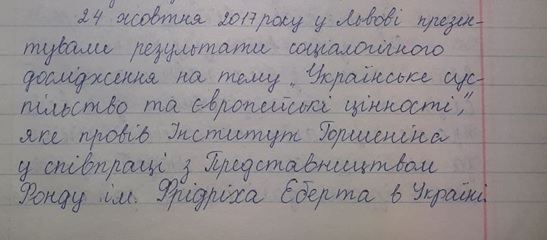 24 жовтня 2017 року у Львові презен-
тували результати соціологічного
дослідження на тему „Українське сус-
пільство та європейські цінності",
яке провів Інститут Горшеніна
у співпраці з Представництвом
Фонду ім. Фрідріха Еберта в Україні.